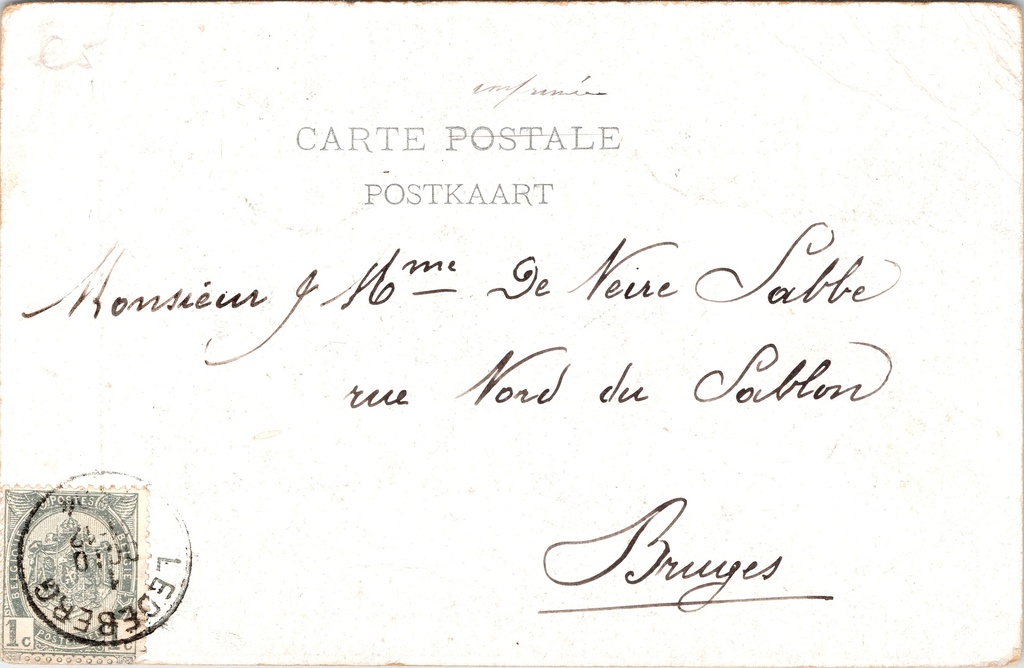 €5
imprimée
CARTE POSTALE
POSTKAART
Monsieur & Mme De Neire Sabbe
rue Nord du Sablon
Bruges
POSTES
BELGIQUE
BELGIE
1c
LEDEBERG